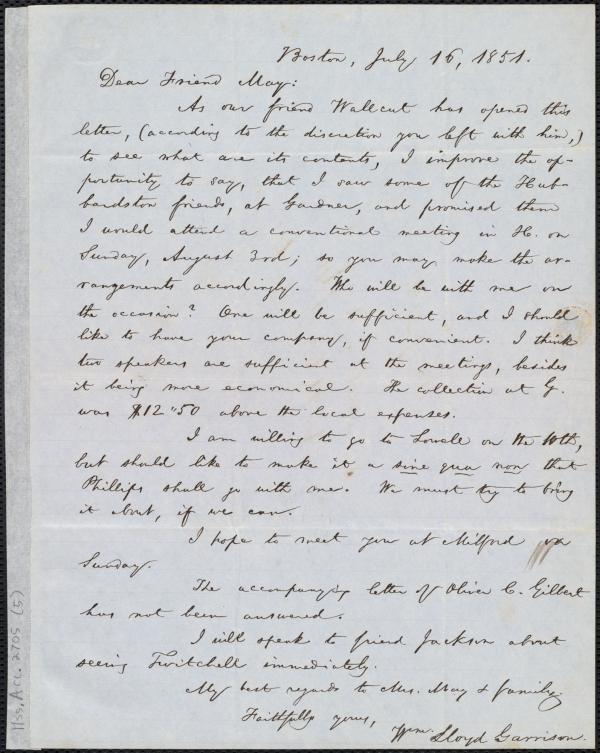 Boston, July 16, 1851.
Dear Friend May:
As our friend Wallcut has opened this
letter, (according to the discretion you left with him,)
to see what are its contents, I improve the op-
portunity to say, that I saw some of the Hub-
bardston friends, at Gardner, and promised them
I would attend a conventional meeting in H. on
Sunday, August 3rd; so you may make the ar-
rangements accordingly. Who will be with me on
the occasion? One will be sufficient, and I should
like to have your company, if convenient. I think
two speakers are sufficient at the meetings, besides
it being more economical. The collection at G.
was $12"50 above the local expenses.
I am willing to go to Lowell on the 10th,
but should like to make it a sine qua non that
Phillips shall go with me. We must try to bring
it about, if we can.
I hope to meet you at Milford on
Sunday.
The accompanying letter of Oliver C. Gilbert
has not been answered.
I will speak to friend Jackson about
seeing Twitchell immediately.
My best regards to Mrs. May & family.
Faithfully yours,
Wm. Lloyd Garrison.
Mss. Acc. 2705 (5)